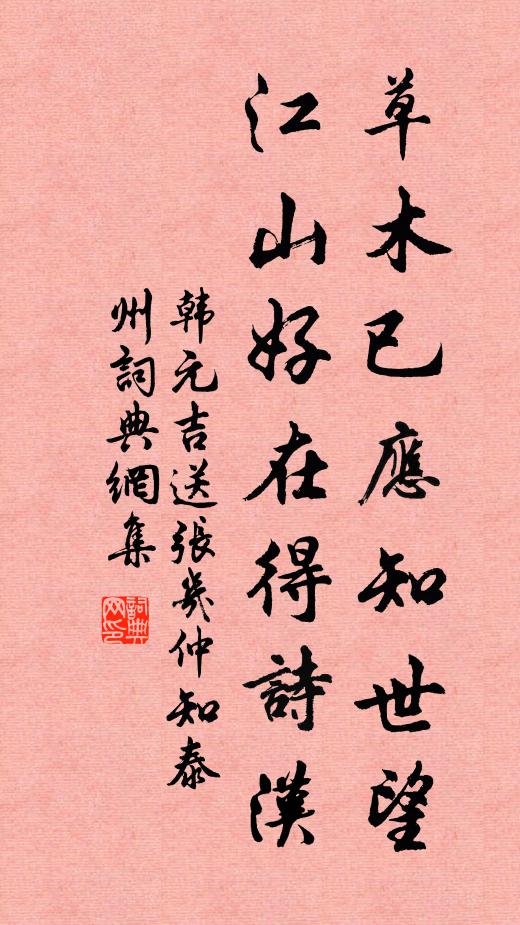 草木已應知世望
江山好在得詩漢
韩元吉送張幾仲知泰
州詞典網集
詞典
网印